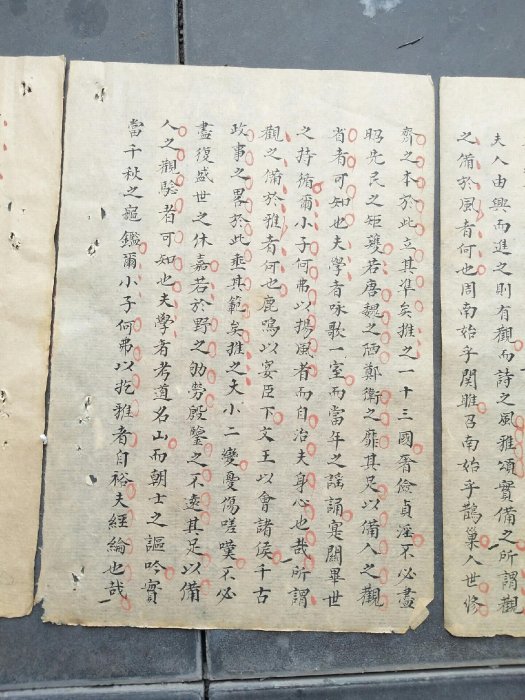 夫人由興而進之則有觀而詩之風雅頌實備之所謂觀
之備於風者何也周南始乎關雎召南始乎鵲巢人世修
齊之本於此立其準矣推之一十三國奢儉貞淫不必盡
昭先民之矩矱若唐魏之陋鄭衛之靡其足以備人之觀
省者可知也夫學者咏歌一室而當年之謠誦寔關畢世
之持循爾小子何弗以揚風者而自治夫身心也哉所謂
觀之備於雅者何也鹿鳴以宴臣下文王以會諸侯千古
政事之畧於此垂其範矣推之大小二變憂傷嗟嘆不必
盡復盛世之休嘉若於野之劬勞殷鑒之不遠其足以備
人之觀騐者可知也夫學者考道名山而朝士之謳吟實
當千秋之寶鑑爾小子何弗以扢雅者自裕夫經綸也哉